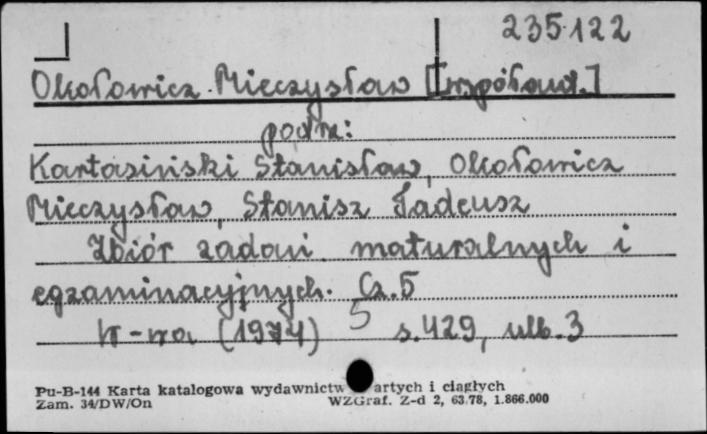 235.122
Okołowicz Mieczysław [współaut.]
podtr:
Kartasiński Stanisław, Okołowicz
Mieczysław, Stanisz Tadeusz
Zbiór zadań maturalnych i
egzaminacyjnych. Cz.5
W-wa (1974) 5 s.429, nlb.3
Pu-B-144 Karta katalogowa wydawnictw artych i ciągłych
Zam. 34/DW/On WZGraf. Z-d 2, 63.78, 1.866.000